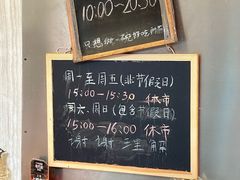 10:00~20:30
只想做一碗好吃的
周一至周五(非节假日)
15:00-15:30 休市
周六、周日(包含节假日)
15:00-16:00 休市